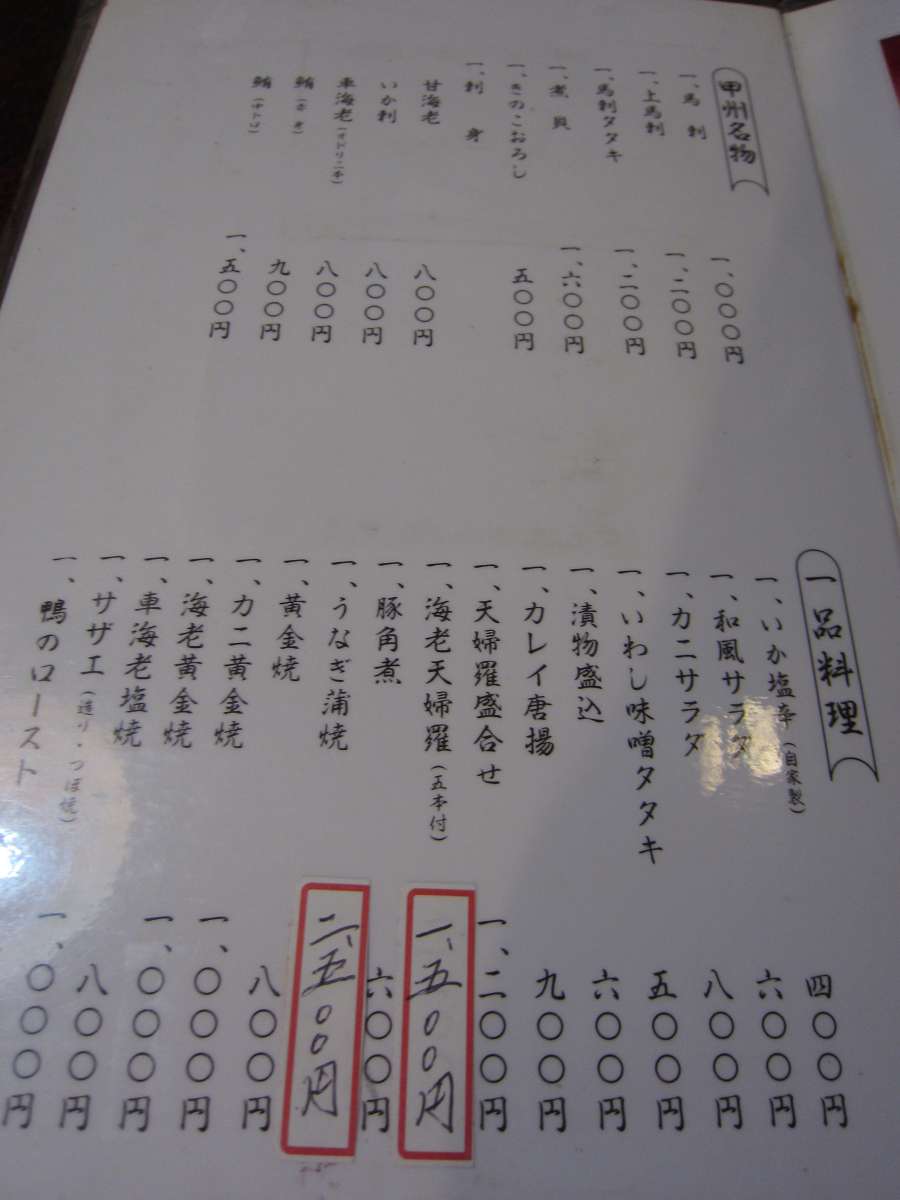 甲州名物
一、馬刺 一、〇〇〇円
一、上馬刺 一、二〇〇円
一、馬刺タタキ 一、二〇〇円
一、煮貝 一、六〇〇円
一、きのこおろし 五〇〇円
一、刺身
甘海老 八〇〇円
いか刺 八〇〇円
車海老(オドリ二本) 八〇〇円
鮪 九〇〇円
鮪(中トロ) 一、五〇〇円
一品料理
一、いか塩辛(自家製) 四〇〇円
一、和風サラダ 六〇〇円
一、カニサラダ 八〇〇円
一、いわし味噌タタキ 五〇〇円
一、漬物盛込 六〇〇円
一、カレイ唐揚 九〇〇円
一、天婦羅盛合せ 一、二〇〇円
一、海老天婦羅(五本付) 一、五〇〇円
一、豚角煮 六〇〇円
一、うなぎ蒲焼 二、五〇〇円
一、黄金焼 八〇〇円
一、カニ黄金焼 一、〇〇〇円
一、海老黄金焼 一、〇〇〇円
一、車海老塩焼 八〇〇円
一、サザエ(造り・つぼ焼) 一、〇〇〇円
一、鴨のロースト